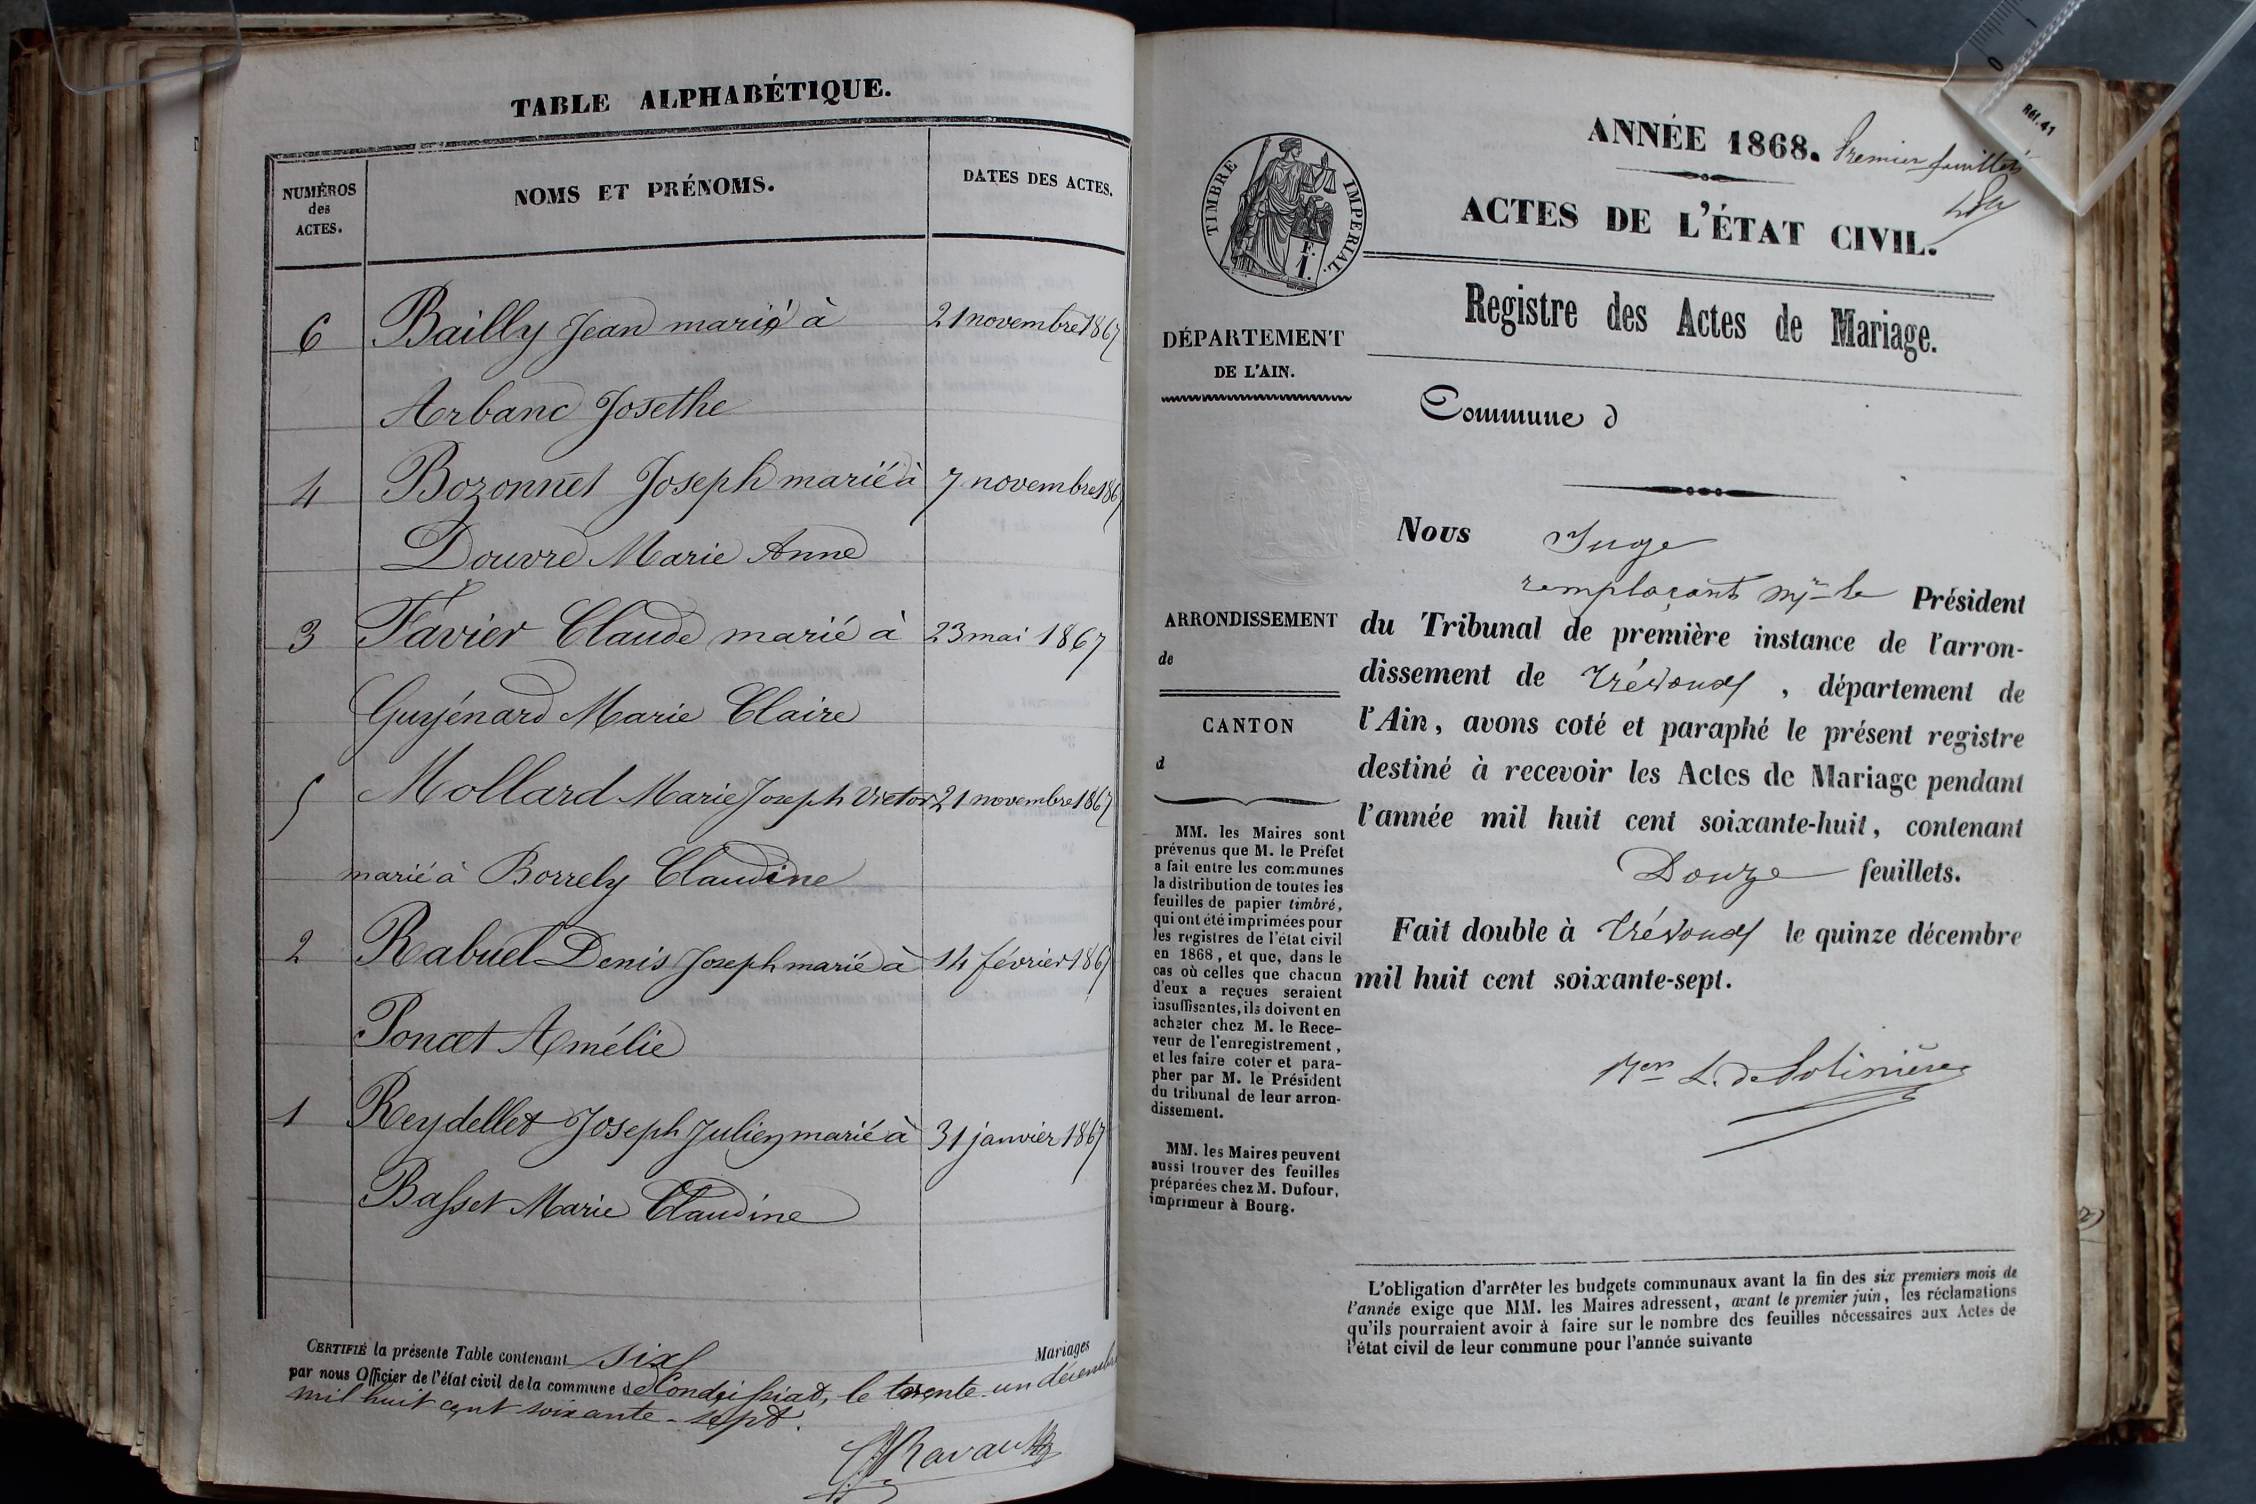 TABLE ALPHABÉTIQUE.
NUMÉROS
des
ACTES.
NOMS ET PRÉNOMS.
DATES DES ACTES.
6 Bailly Jean marié à 21 novembre 1867
Arbanc Josethe
4 Bozonnet Joseph marié à 7 novembre 1867
Douvre Marie Anne
3 Favier Claude marié à 23 mai 1867
Guyénard Marie Claire
5 Mollard Marie Joseph Victor 21 novembre 1867
marié à Borrely Claudine
2 Rabuel Denis Joseph marié à 14 février 1867
Poncet Amélie
1 Reydellet Joseph Julien marié à 31 janvier 1867
Basset Marie Claudine
CERTIFIÉ la présente Table contenant six Mariages
par nous Officier de l'état civil de la commune de Condeissiat, le trente-un décembre
mil huit cent soixante-sept.
Ravaux
ANNÉE 1868. Premier feuillet
ACTES DE L'ÉTAT CIVIL.
TIMBRE IMPÉRIAL.
F.
1.
Registre des Actes de Mariage.
DÉPARTEMENT
DE L'AIN.
Commune d
ARRONDISSEMENT
de
CANTON
d
MM. les Maires sont
prévenus que M. le Préfet
a fait entre les communes
la distribution de toutes les
feuilles de papier timbré,
qui ont été imprimées pour
les registres de l'état civil
en 1868, et que, dans le
cas où celles que chacun
d'eux a reçues seraient
insuffisantes, ils doivent en
acheter chez M. le Rece-
veur de l'enregistrement,
et les faire coter et para-
pher par M. le Président
du tribunal de leur arron-
dissement.
MM. les Maires peuvent
aussi trouver des feuilles
préparées chez M. Dufour,
imprimeur à Bourg.
Nous Juge
remplaçant Mr le Président
du Tribunal de première instance de l'arron-
dissement de Trévoux, département de
l'Ain, avons coté et paraphé le présent registre
destiné à recevoir les Actes de Mariage pendant
l'année mil huit cent soixante-huit, contenant
Douze feuillets.
Fait double à Trévoux le quinze décembre
mil huit cent soixante-sept.
L'obligation d'arrêter les budgets communaux avant la fin des six premiers mois de
l'année exige que MM. les Maires adressent, avant le premier juin, les réclamations
qu'ils pourraient avoir à faire sur le nombre des feuilles nécessaires aux Actes de
l'état civil de leur commune pour l'année suivante
0 1
Réf. 41